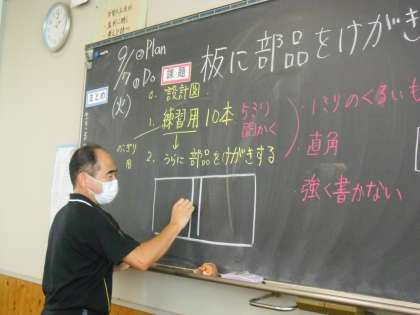 9/7
(火)
◎Plan
◎Do
課題
板に部品をけがき
まとめ
0. 設計図
1. 練習用10本
5ミリ間かく
のこぎり用
2. うらに 部品をけがきする
・1ミリのくるいも
・直角
・強く書かない